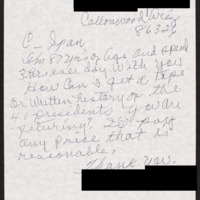 Cottonwood, Ariz
86326
C-Span
I'm 87 yrs of age and spend
3 hrs ever day with you
How can I get a tape
or written history of the
41 presidents you are
featuring? I'll pay
any price that is
reasonable.
Thank you.